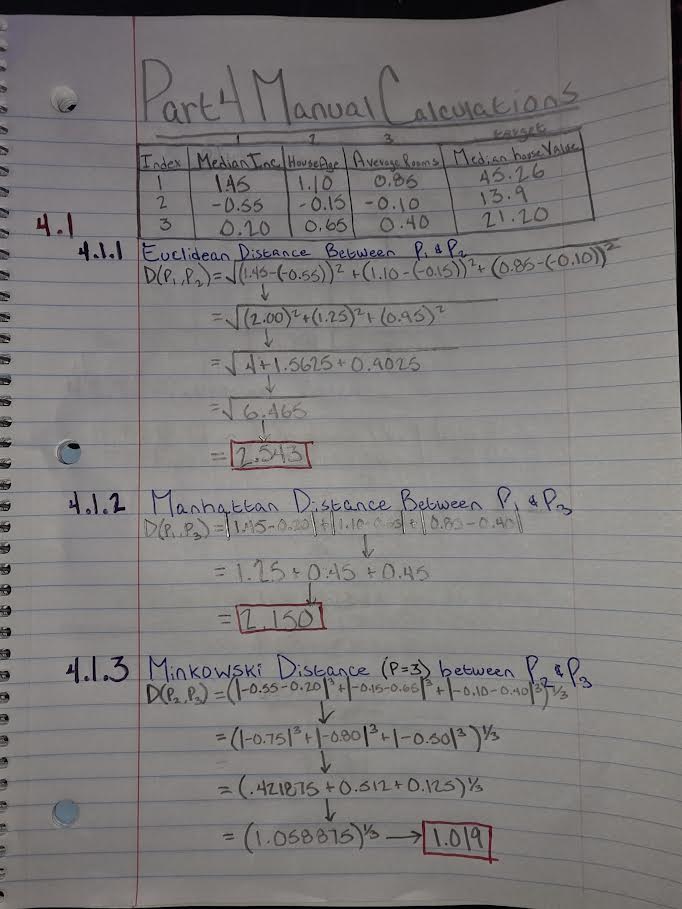 Part 4 Manual Calculations
1 2 3 target
Index MedianInc HouseAge AverageRooms Median house Value
1 1.45 1.10 0.85 45.26
2 -0.55 -0.15 -0.10 13.9
3 0.20 0.65 0.40 21.20
4.1
4.1.1 Euclidean Distance Between P₁ & P₂
D(P₁,P₂)=√(1.45-(-0.55))²+(1.10-(-0.15))²+(0.85-(-0.10))²
↓
=√(2.00)²+(1.25)²+(0.95)²
↓
=√4+1.5625+0.9025
↓
=√6.465
↓
= 2.543
4.1.2 Manhattan Distance Between P₁ & P₃
D(P₁,P₃)=|1.45-0.20|+|1.10-0.65|+|0.85-0.40|
↓
=1.25+0.45+0.45
↓
= 2.150
4.1.3 Minkowski Distance (P=3) between P₂ & P₃
D(P₂,P₃)=(|-0.55-0.20|³+|-0.15-0.65|³+|-0.10-0.40|³)^1/3
↓
=(|-0.75|³+|-0.80|³+|-0.50|³)^1/3
↓
=(.421875+0.512+0.125)^1/3
↓
=(1.058875)^1/3 → 1.019